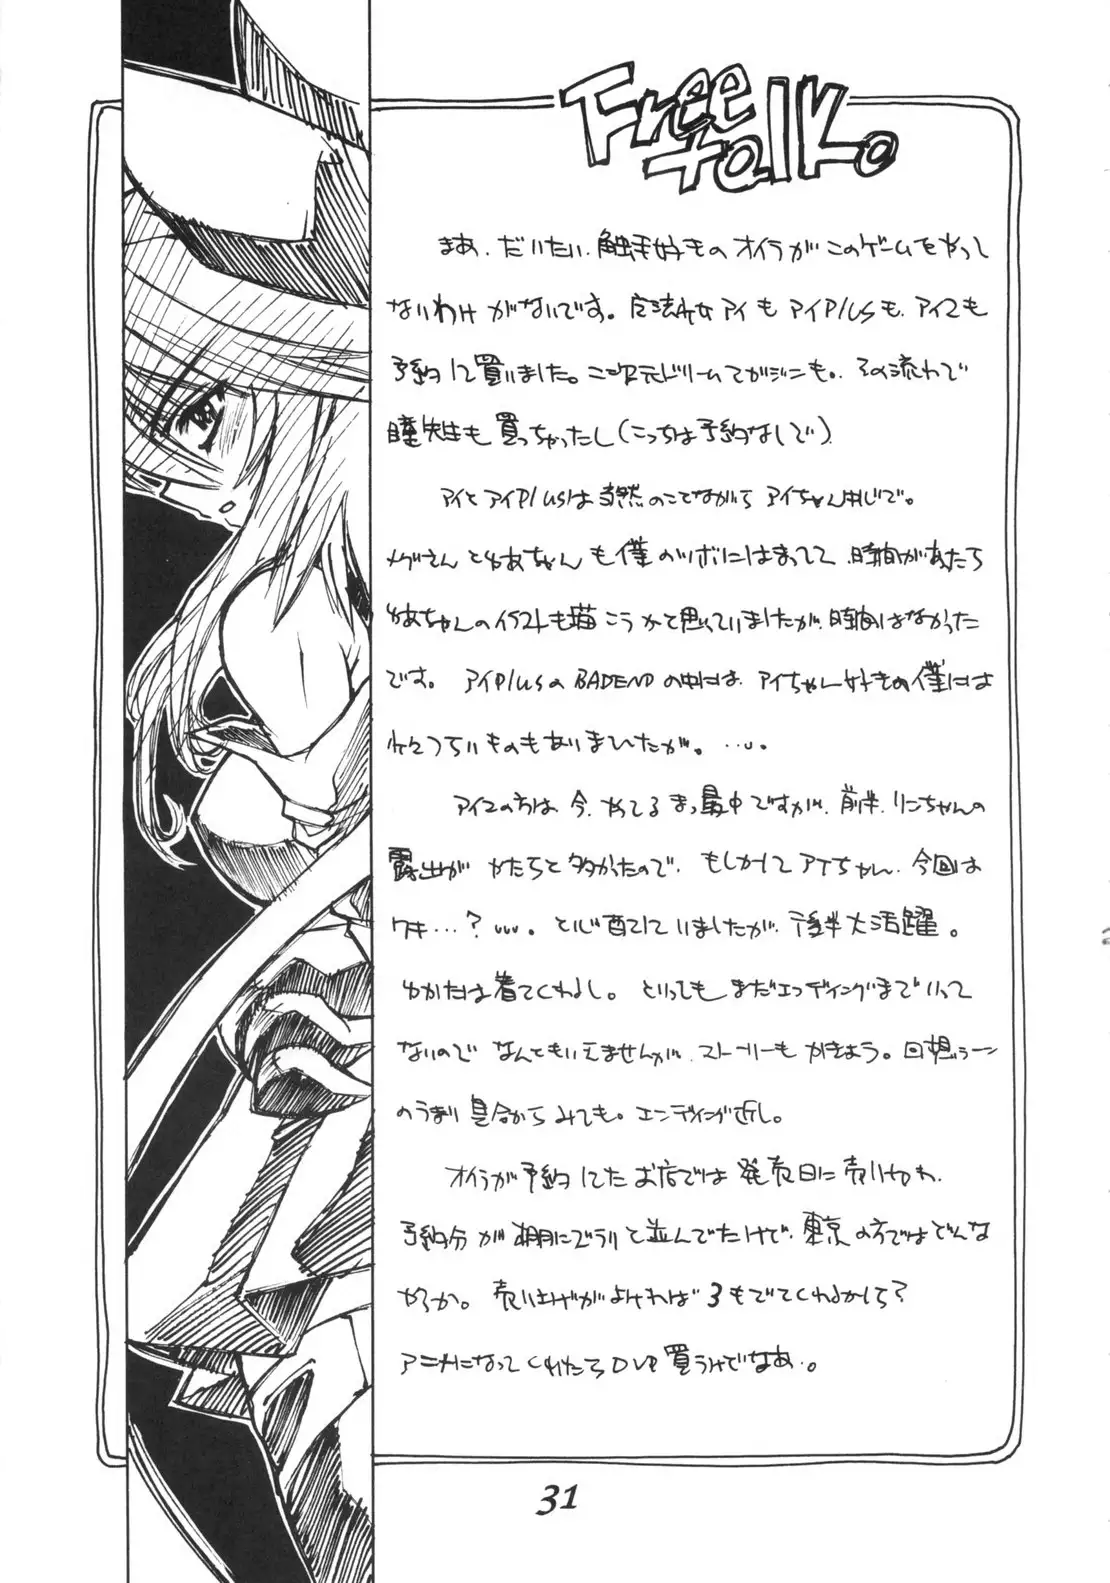 Free
talk。
まあ、だいたい、触手好きのオイラがこのゲームをやって
ないわけがないです。魔法少女アイもアイPlusも、アイ2も
予約して買いました。二次元ドリームマガジンも。その流れで
瞳先生も買っちゃったし(こっちは予約なしで)
アイとアイPlusは当然のことながらアイちゃん中心で。
メグさんとゆあちゃんも僕のツボにはまってて、時間があたら
ゆあちゃんのイラストも描こうかて思っていましたが、時間はなかった
です。アイPlusのBADENDの中には、アイちゃん好きの僕には
ものもありましたが。…。
アイ2の方は、今、やてるまっ最中ですが、前半、りんちゃんの
露出がかたらと多かたので、もしかしてアイちゃん、今回は
ワキ…?…。と心配していましたが、後半大活躍。
ゆかたは着てくれるし。といってもまだエンディングまでいって
ないのでなんともいえませんが、ストーリーもかきょう。回想シーン
のうまり具合からみても。エンディング近し。
オイラが予約してたお店では発売日に売りきれ、
予約分が棚にズラリと並んでたけど、東京の方ではどんな
かろか。売り上げがよければ3もでてくれるかしら?
アニメになってくれたらDVD買うけどなあ。
31